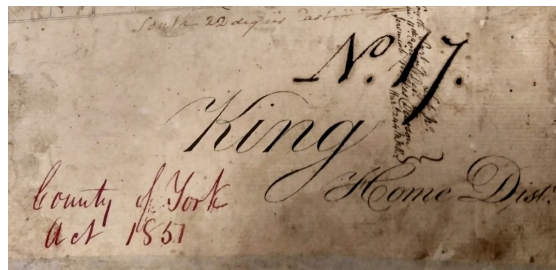 South 22 degrees East
No. 17.
King
Home Dist.
County of York
Act 1851